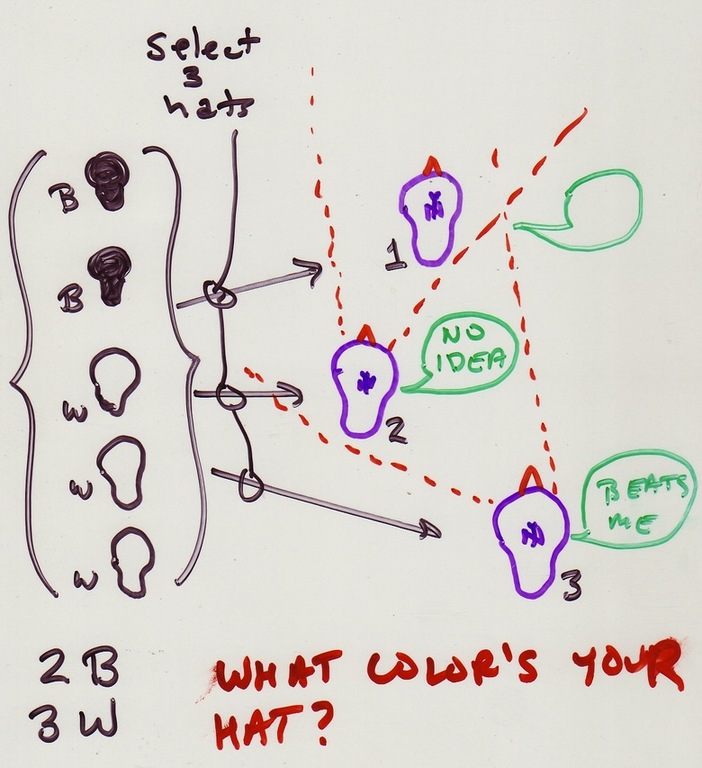 select
3
hats
B
B
W
W
W
1
NO
IDEA
2
BEATS
ME
3
2 B
3 W
WHAT COLOR'S YOUR
HAT?